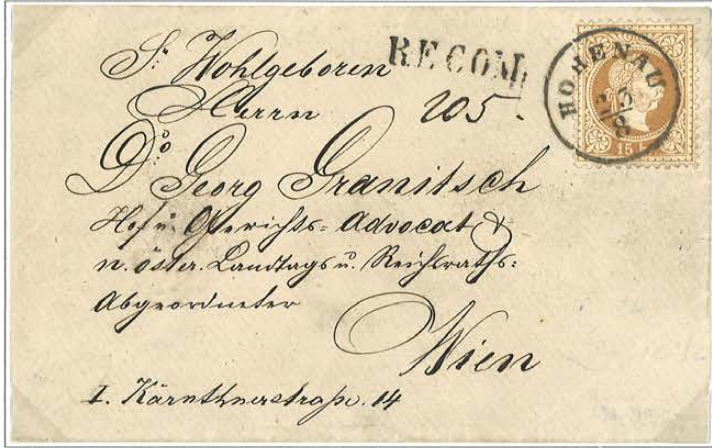 Sr Wohlgeboren
RECOM
Herrn 205.
HOHENAU
23
8
15
Dr Georg Granitsch
Hof u. Gerichts= Advocat &
n. öster. Landtags u. Reichsraths=
Abgeordneter
Wien
I. Kärnthnerstraße. 14